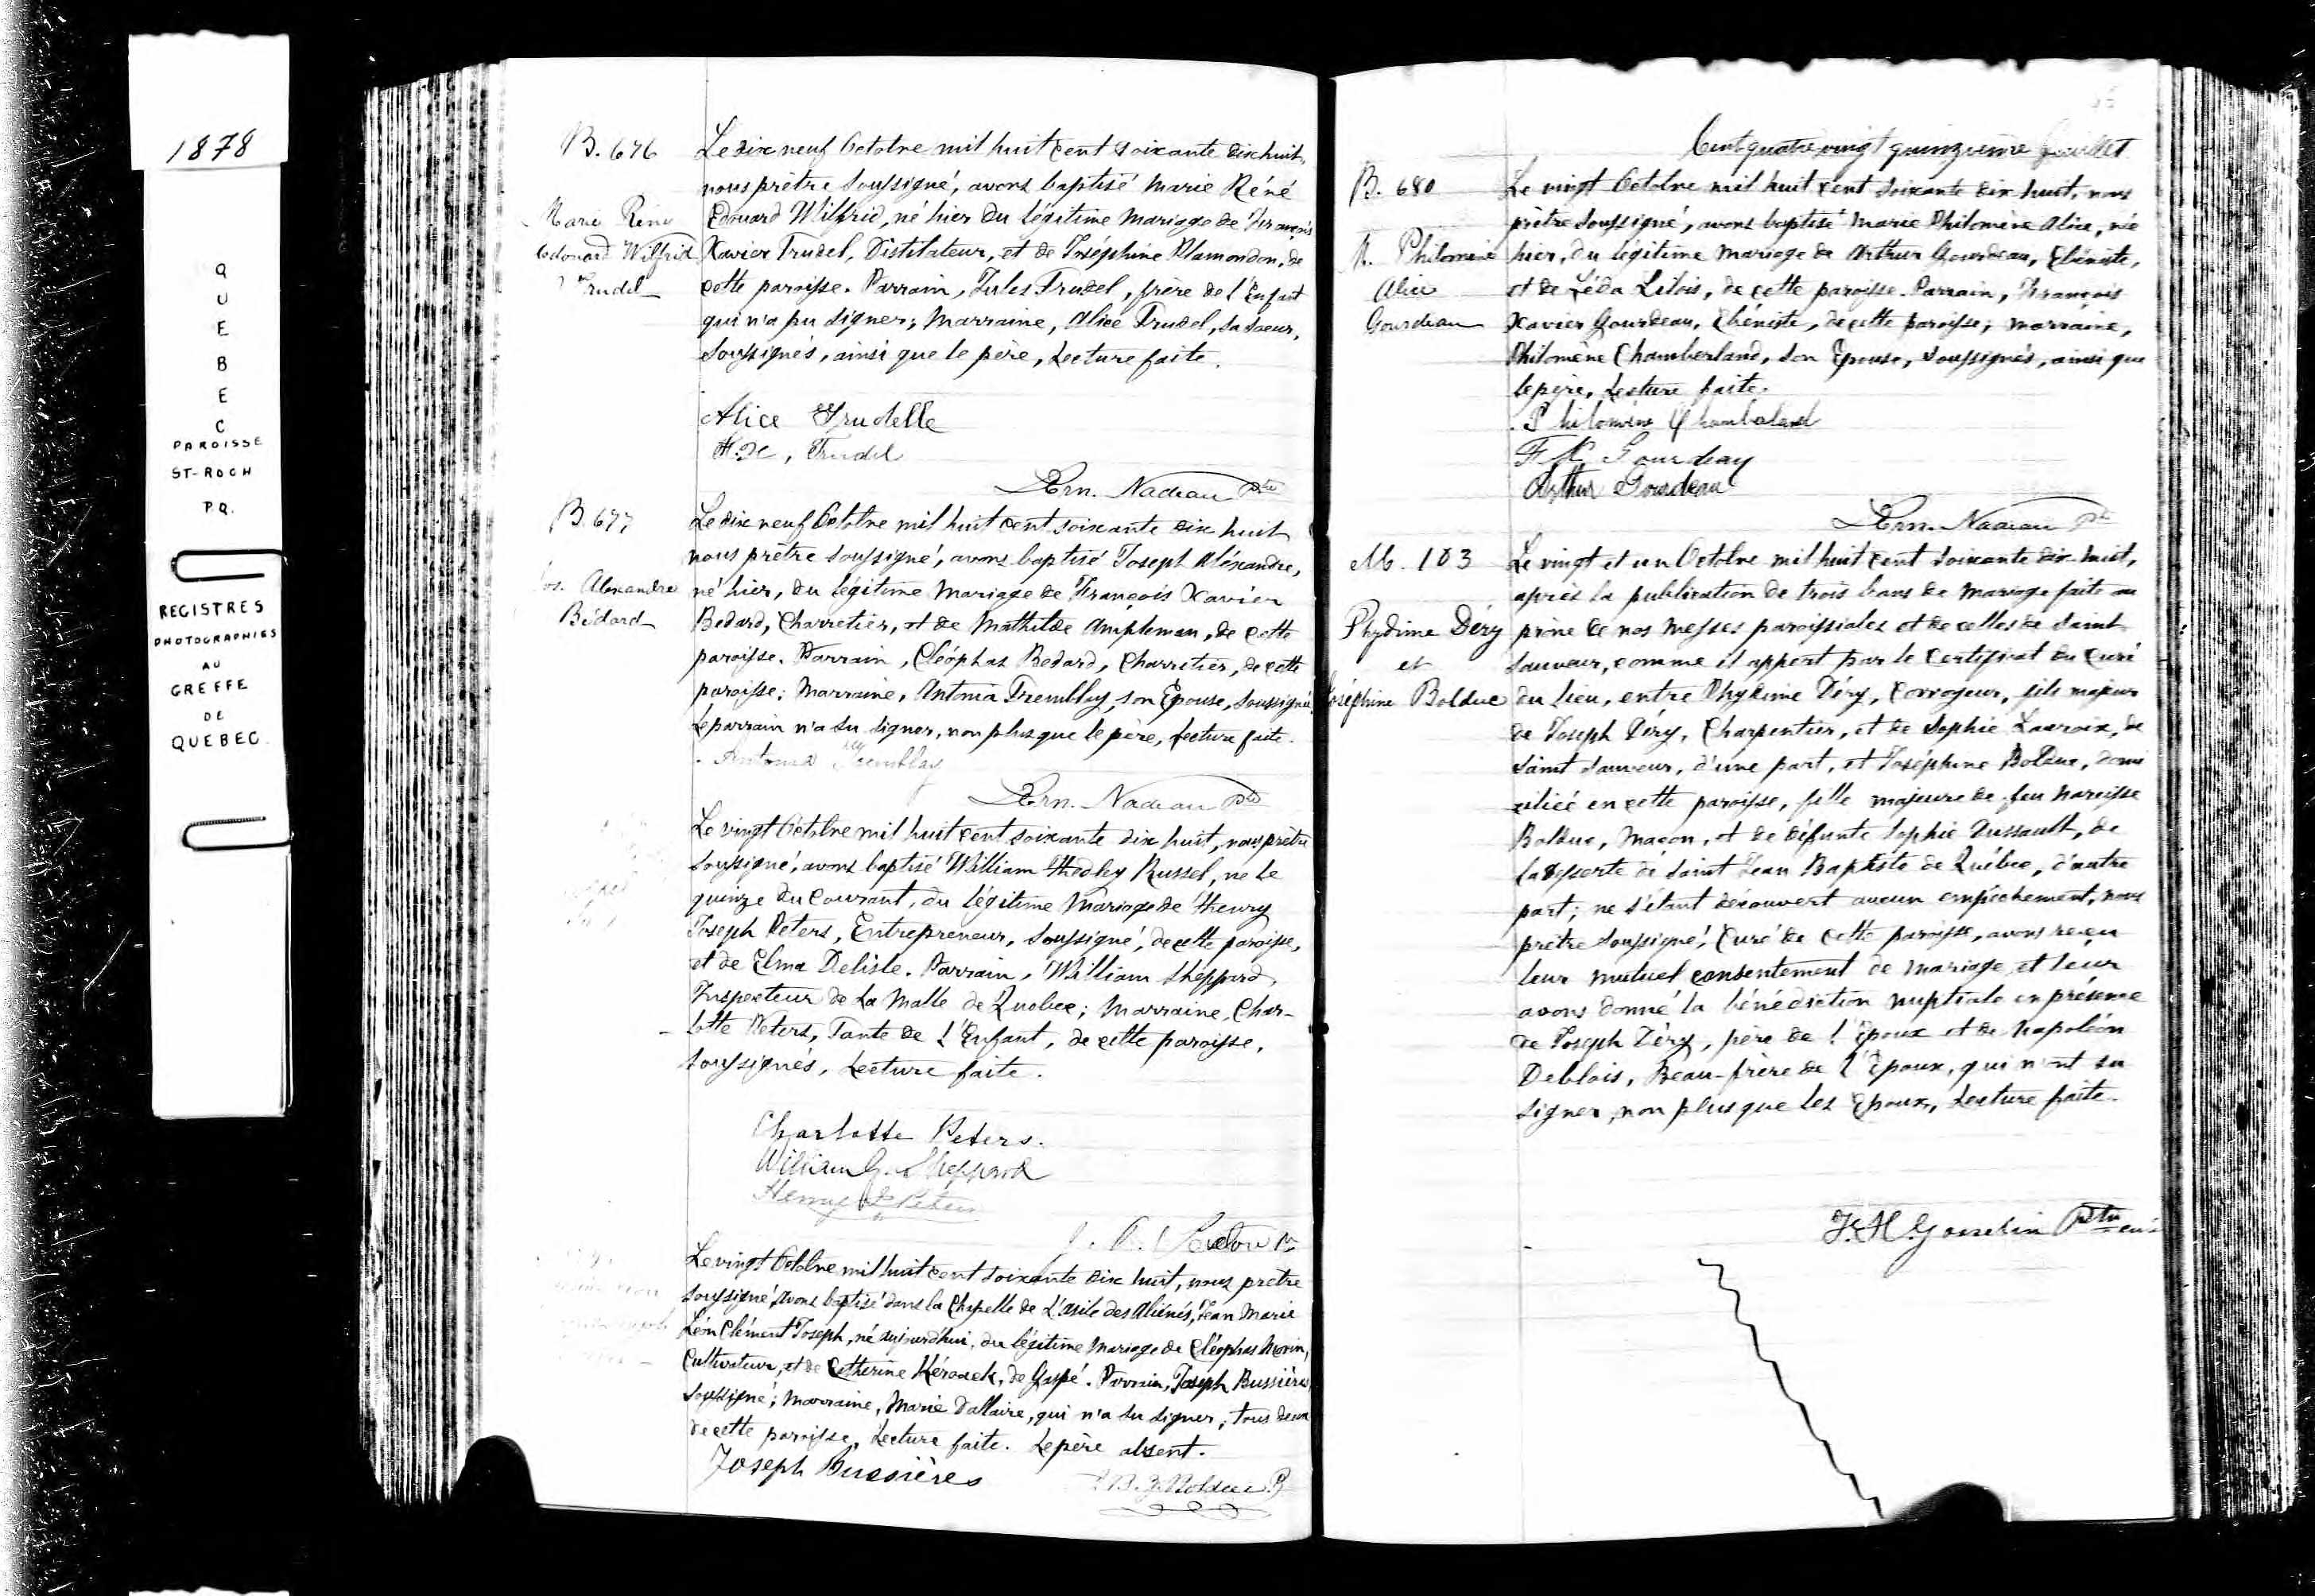 1878
Q
U
E
B
E
C
PAROISSE
ST-ROCH
P.Q.
REGISTRES
PHOTOGRAPHIES
AU
GREFFE
DE
QUEBEC.
B. 676
Marie Réné
Edouard Wilfrid
Trudel
Le dix neuf Octobre mil huit cent soixante dix huit,
nous prêtre soussigné, avons baptisé Marie Réné
Edouard Wilfrid, né hier du légitime mariage de François
Xavier Trudel, Distilateur, et de Joséphine Plamondon, de
cette paroisse. Parrain, Jules Trudel, frère de l'Enfant
qui n'a pu signer; Marraine, Alice Trudel, sa soeur,
soussignés, ainsi que le père, Lecture faite.
Alice Trudelle
F. X, Trudel
Ern. Nadeau Ptre
B. 677
Jos. Alexandre
Bédard
Le dix neuf Octobre mil huit cent soixante dix huit
nous prêtre soussigné, avons baptisé Joseph Aléxandre,
né hier, du légitime Mariage de François Xavier
Bedard, Charretier, et de Mathilde Ampleman, de cette
paroisse. Parrain, Cléophas Bedard, Charretier, de cette
paroisse; Marraine, Antonia Tremblay son Epouse, soussignée
Le parrain n'a su signer, non plus que le père, Lecture faite.
Antonia Tremblay
Ern. Nadeau Ptre
Le vingt Octobre mil huit cent soixante dix huit, nous prêtre
soussigné, avons baptisé William Hedley Russel, né le
quinze du Courant, du légitime Mariage de Henry
Joseph Peters, Entrepreneur, soussigné, de cette paroisse,
et de Elma Delisle. Parrain, William Sheppard,
Inspecteur de La Malle de Quebec; Marraine, Char-
lotte Peters, Tante de L'Enfant, de cette paroisse,
soussignés, Lecture faite.
Charlotte Peters.
William G. Sheppard
Henry J. Peters
Le vingt Octobre mil huit cent soixante dix huit, nous prêtre
soussigné, avons baptisé dans la Chapelle de L'asile des aliénés, Jean Marie
Léon Clément Joseph, né aujourd'hui, du légitime Mariage de Cléophas Morin,
Cultivateur, et de Catherine Kéroack, de Gaspé. Parrain, Joseph Bussières,
soussigné; Marraine, Marie Dallaire, qui n'a su signer; tous deux
de cette paroisse, Lecture faite. Le père absent.
Joseph Bussières
J. B. Z. Bolduc P
Cent quatre vingt quinzième feuillet
B. 680
M. Philomène
Alice
Gourdeau
Le vingt Octobre mil huit cent soixante dix huit, nous
prêtre soussigné, avons baptisé Marie Philomène Alice, née
hier, du légitime mariage de Arthur Gourdeau, Ebéniste,
et de Léda Lilois, de cette paroisse. Parrain, François
Xavier Gourdeau, Ebéniste, de cette paroisse; marraine,
Philomène Chamberland, son Epouse, soussignés, ainsi que
le père, Lecture faite.
Philomène Chamberland
F. X. Gourdeau
Arthur Gourdeau
Ern. Nadeau Ptre
M. 103
Phydime Déry
et
Joséphine Bolduc
Le vingt et un Octobre mil huit cent soixante dix huit,
après la publication de trois bans de mariage faite au
prône de nos messes paroissiales et de celles de Saint
Sauveur, comme il appert par le Certificat du Curé
du lieu, entre Phydime Déry, Corroyeur, fils majeur
de Joseph Déry, Charpentier, et de Sophie Lavroix, de
Saint Sauveur, d'une part, et Joséphine Bolduc, domi
ciliée en cette paroisse, fille majeure de feu Narcisse
Bolduc, Maçon, et de défunte Sophie Dussault, de
la desserte de Saint Jean Baptiste de Québec, d'autre
part; ne s'étant découvert aucun empêchement, nous
prêtre soussigné, Curé de cette paroisse, avons reçu
leur mutuel consentement de mariage et leur
avons donné la bénédiction nuptiale en présence
de Joseph Déry, père de l'Epoux et de Napoléon
Deblois, Beau-frère de l'Epoux, qui n'ont su
signer, non plus que les Epoux, Lecture faite.
F. H. Gosselin Ptre curé